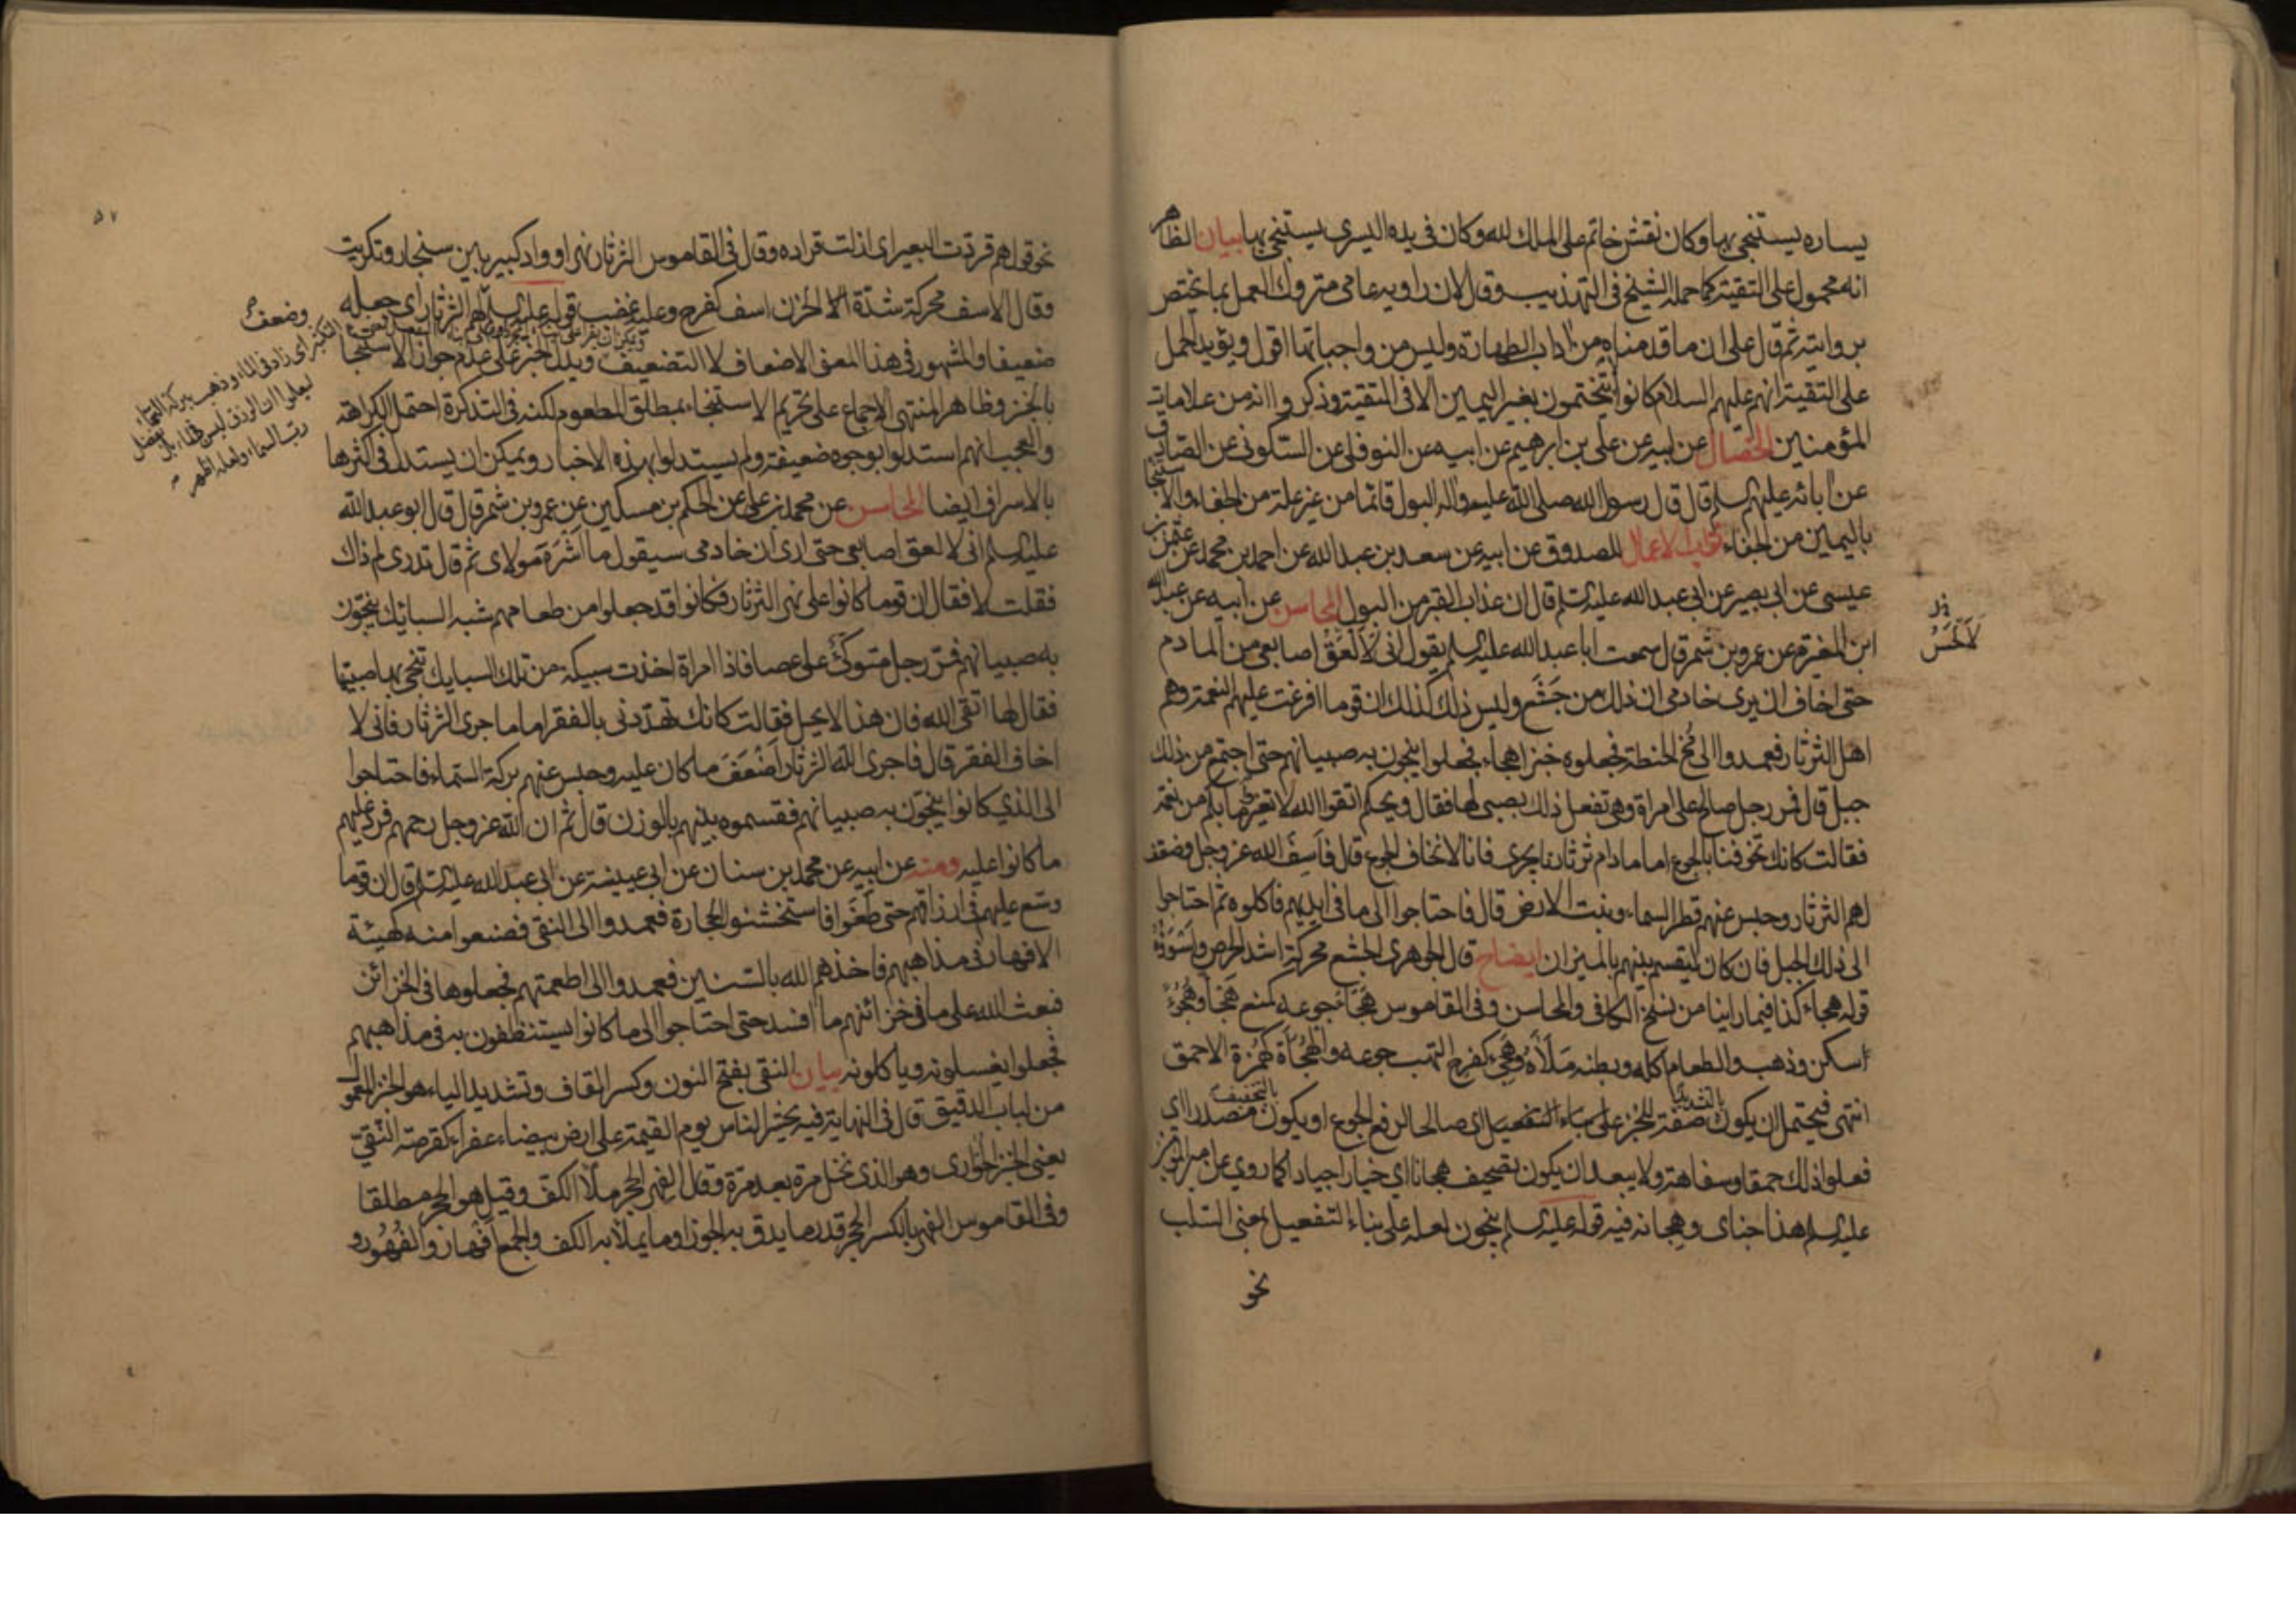 يساره يستنجي بها وكان نقش خاتم علي الملك لله وكان في يده اليسرى يستنجي بها بيان الظاهر
انه محمول على التقية كما حمله الشيخ في التهذيب وقال لان راويه عامي متروك العمل بما يختص
بروايته ثم قال على ان ما قدمناه من اداب الطهارة وليس من واجباتها اقول ويؤيد الحمل
على التقية انهم عليهم السلام كانوا يتختمون بغير اليمين الا في التقية وذكروا انه من علامات
المؤمنين الخصال عن ابيه عن علي بن ابرهيم عن ابيه عن النوفلي عن السكوني عن الصادق
عن ابائه عليهم السلم قال قال رسول الله صلى الله عليه واله البول قائما من غير علة من الجفاء والاستنجا
باليمين من الجفاء ثواب الاعمال للصدوق عن ابيه عن سعد بن عبد الله عن احمد بن محمد عن عثمن بن
عيسى عن ابي بصير عن ابي عبد الله عليه السلم قال ان عذاب القبر من البول المحاسن عن ابيه عن عبد الله
ابن المغيرة عن عمرو بن شمر قال سمعت ابا عبد الله عليه السلم يقول اني لالعق اصابعي من المادم
حتى اخاف ان يرى خادمي ان ذلك من جشع وليس ذلك كذلك ان قوما افرغت عليهم النعمة وهم
اهل الثرثار فعمدوا الى مخ الحنطة فجعلوه خبزا هجاء فجعلوا ينجون به صبيانهم حتى اجتمع من ذلك
جبل قال فمر رجل صالح على امراة وهي تفعل ذلك بصبي لها فقال ويحكم اتقوا الله لا تغيروا ما بكم من نعمة
فقالت كانك تخوفنا بالجوع اما ما دام ثرثارنا يجري فانا لا نخاف الجوع قال فاسف الله عز وجل وضعف
لهم الثرثار وحبس عنهم قطر السماء ونبت الارض قال فاحتاجوا الى ما في ايديهم فاكلوه ثم احتاجوا
الى ذلك الجبل فان كان ليقسم بينهم بالميزان ايضاح قال الجوهري الجشع محركة اشد الحرص واسوؤه
قوله هجاء كذا فيما راينا من نسخ الكافي والمحاسن وفي القاموس هجا جوعه كمنع هجا وهجوءا
سكن وذهب والطعام اكله وبطنه ملأه وهجئ كفرح التهب جوعه والهجأة كهمزة الاحمق
انتهى فيحتمل ان يكون بالتشديد صفة للخبز على بناء التفعيل اي صالحا لرفع الجوع او يكون بالتخفيف مصدرا اي
فعلوا ذلك حمقا وسفاهة ولا يبعد ان يكون تصحيف هجانا اي خيارا جيادا كما روي عن امير المؤمنين
عليه السلم هذا جناي وهجانه فيه قوله عليه السلم ينجون لعله على بناء التفعيل بمعنى السلب
نحو
لالحس
نحو قولهم قردت البعير اي ازلت قراده وقال في القاموس الثرثار نهر او واد كبير بين سنجار وتكريت
وقال الاسف محركة شدة الحزن اسف كفرح وعليه غضب قوله عليه السلم لهم الثرثار اي جعله
ضعيفا والمشهور في هذا المعنى الاضعاف لا التضعيف ويدل الخبر على عدم جواز الاستنجا
بالخبز وظاهر المنتهى الاجماع على تحريم الاستنجاء بمطلق المطعوم لكنه في التذكرة احتمل الكراهة
والعجب انهم استدلوا بوجوه ضعيفة ولم يستدلوا بهذه الاخبار ويمكن ان يستدل في اكثرها
بالاسراف ايضا المحاسن عن محمد بن علي عن الحكم بن مسكين عن عمرو بن شمر قال قال ابو عبد الله
عليه السلم اني لالعق اصابعي حتى ارى ان خادمي سيقول ما اشره مولاي ثم قال تدري لم ذاك
فقلت لا فقال ان قوما كانوا على نهر الثرثار فكانوا قد جعلوا من طعامهم شبه السبائك ينجون
به صبيانهم فمر رجل متوكئ على عصا فاذا امراة اخذت سبيكة من تلك السبايك تنجي بها صبيها
فقال لها اتقي الله فان هذا لا يحل فقالت كانك تهددني بالفقر اما ما جرى الثرثار فاني لا
اخاف الفقر قال فاجرى الله الثرثار اضعف ما كان عليه وحبس عنهم بركة السماء فاحتاجوا
الى الذي كانوا ينجون به صبيانهم فقسموه بينهم بالوزن قال ثم ان الله عز وجل رحمهم فرد عليهم
ما كانوا عليه ومنه عن ابيه عن محمد بن سنان عن ابي عيينة عن ابي عبد الله عليه السلم قال ان قوما
وسع عليهم في ارزاقهم حتى طغوا فاستخشنوا الحجارة فعمدوا الى النقي فصنعوا منه كهيئة
الافهار في مذاهبهم فاخذهم الله بالسنين فعمدوا الى اطعمتهم فجعلوها في الخزائن
فبعث الله على ما في خزائنهم ما افسده حتى احتاجوا الى ما كانوا يستنظفون به في مذاهبهم
فجعلوا يغسلونه وياكلونه بيان النقي بفتح النون وكسر القاف وتشديد الياء هو الخبز المعمول
من لباب الدقيق قال في النهاية فيه يحشر الناس يوم القيمة على ارض بيضاء عفراء كقرصة النقي
يعني الخبز الحواري وهو الذي نخل مرة بعد مرة وقال الفهر الحجر ملأ الكف وقيل هو الحجر مطلقا
وفي القاموس الفهر بالكسر الحجر قدر ما يدق به الجوز او ما يملأ به الكف والجمع افهار وفهور و
وضعف
اي زاد في الماء وذهب ببركة السماء
ليعلموا ان الرزق ليس بالماء بل بفضل
رب السماء ولعله اظهر
٥٧